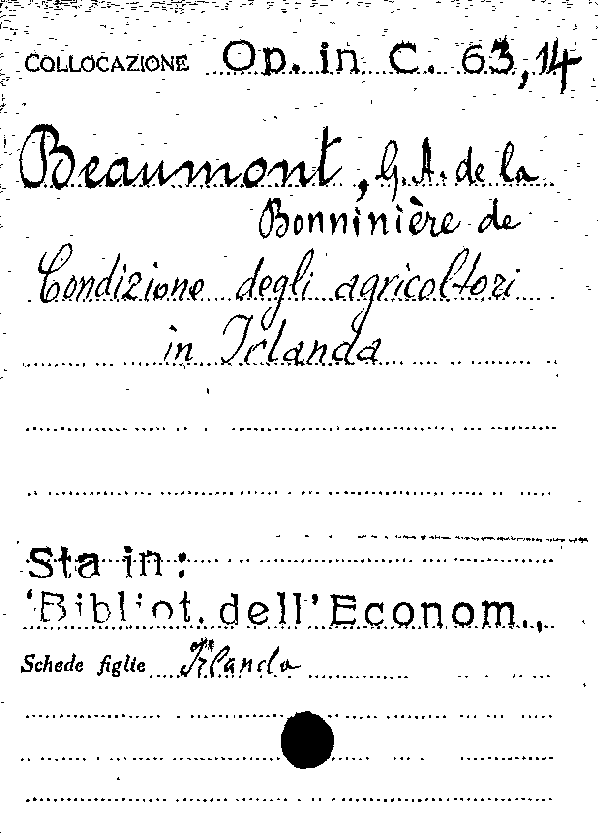 COLLOCAZIONE Op. in C. 63,14
Beaumont, G. A. de la
Bonninière de
Condizione degli agricoltori
in Irlanda
Sta in:
'Bibliot. dell'Econom.,
Schede figlie Irlanda